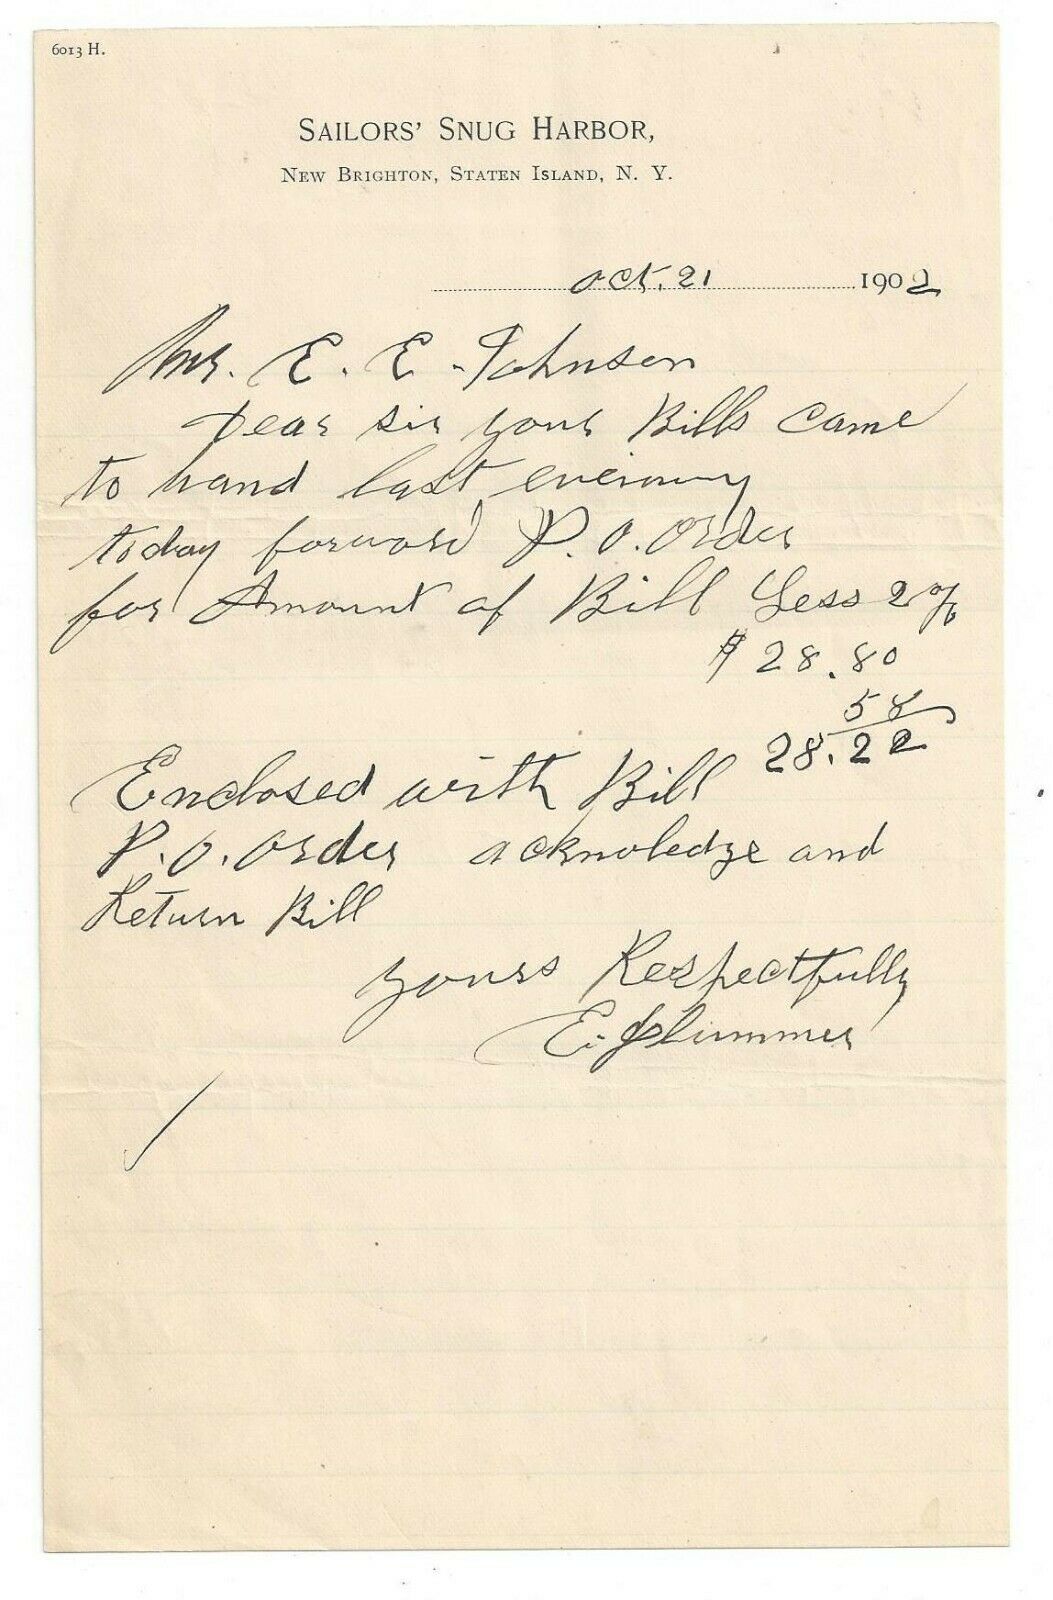 6013 H.
SAILORS' SNUG HARBOR,
NEW BRIGHTON, STATEN ISLAND, N. Y.
Oct. 21 1902
Mr. E. E. Johnson
Dear sir your Bills came
to hand last evening
today forward P. O. Order
for Amount of Bill Less 2 %
$ 28.80
58
28.22
Enclosed with Bill
P. O. Order acknoledge and
Return Bill
yours Respectfully
E.